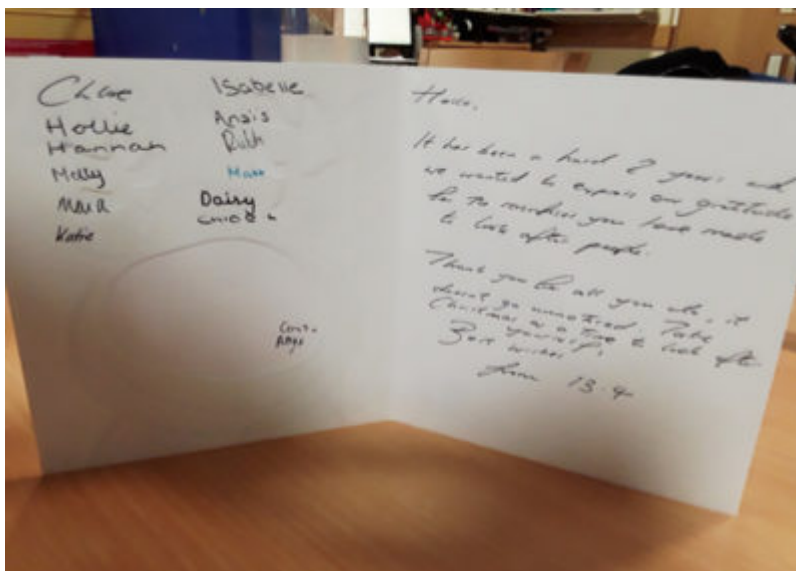 Chloe
Hollie
Hannah
Molly
Katie
Isabelle
Anais
Ruth
Matt
Daisy
Hello,
It has been a hard 2 years and
we wanted to express our gratitude
for the sacrifices you have made
to look after people.
Thank you for all you do, it
doesn't go unnoticed. Take
Christmas as a time to look after
yourself.
Best wishes
from 13.4